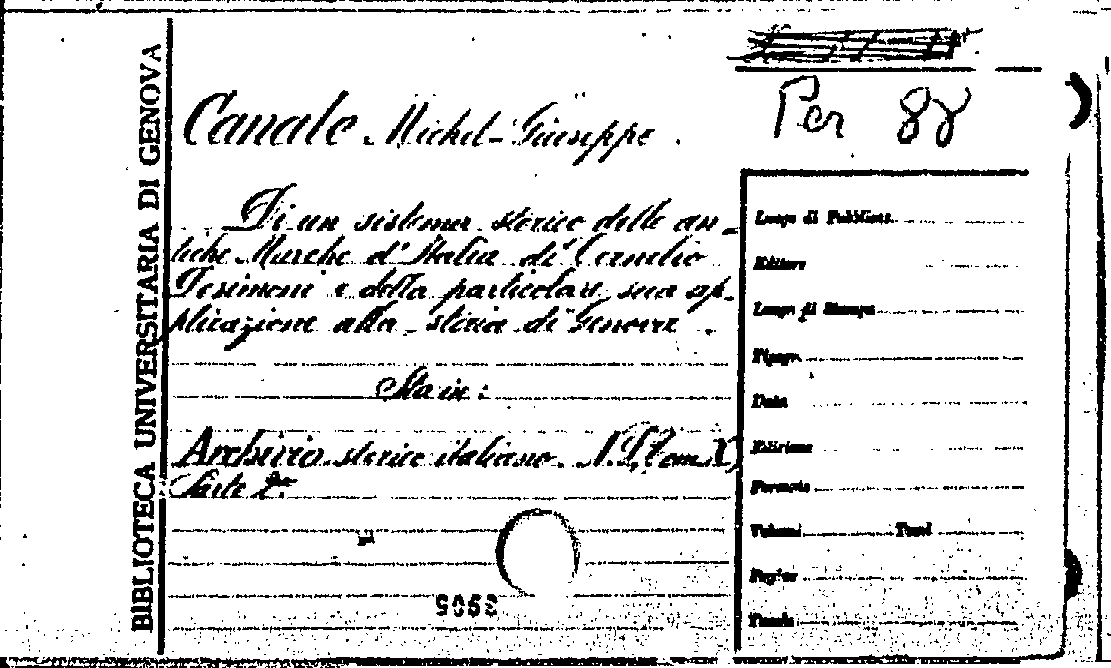 BIBLIOTECA UNIVERSITARIA DI GENOVA
Per 88
Canale Michel-Giuseppe.
Di un sistema storico delle an-
tiche Marche d'Italia di Cornelio
Desimoni e della particolare sua ap-
plicazione alla storia di Genova.
Sta in:
Archivio storico italiano. N.S. Tom X,
Parte 2ª
Luogo di Pubblicaz.
Editore
Luogo di Stampa
Tipogr.
Data
Edizione
Formato
Volumi Tomi
Pagine
Tavole